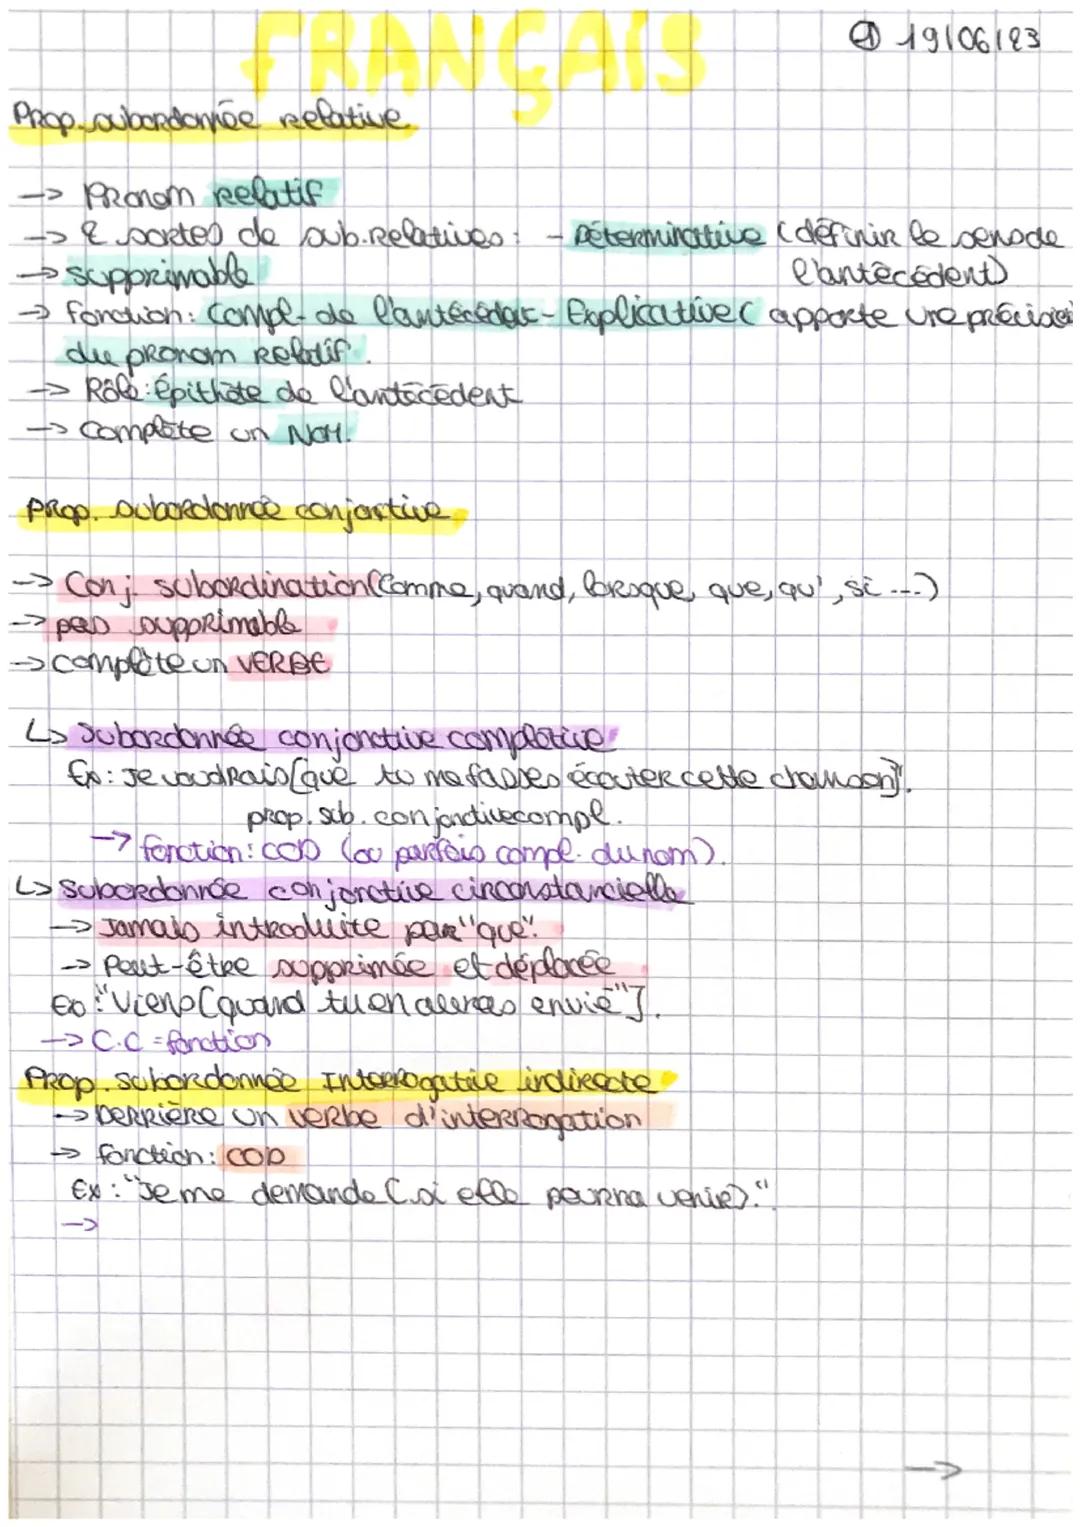 FRANÇAIS
① 19/06/23
Prop. subordonnée relative
-> Pronom relatif
-> 2 sortes de sub. relatives : - Déterminative (définir le sens de
l'antécédent)
-> supprimable
-> fonction : Compl. de l'antécédent - Explicative ( apporte une précision
du pronom relatif.
-> Rôle : Épithète de l'antécédent
-> Complète un NOM.
Prop. subordonnée conjonctive
-> Conj. subordination (Comme, quand, lorsque, que, qu', si ...)
-> pas supprimable
-> complète un VERBE
↳ Subordonnée conjonctive complétive
Ex : Je voudrais [que tu me fasses écouter cette chanson]".
prop. sub. conjonctive compl.
-> fonction : COD (ou parfois compl. du nom).
↳ subordonnée conjonctive circonstancielle
-> Jamais introduite par "que".
-> Peut-être supprimée et déplacée
Ex : "Viens [quand tu en auras envie"].
-> C.C = fonction
Prop. subordonnée Interrogative indirecte
-> Derrière un verbe d'interrogation
-> fonction : COD
Ex : "Je me demande (si elle pourra venir)."
->
->